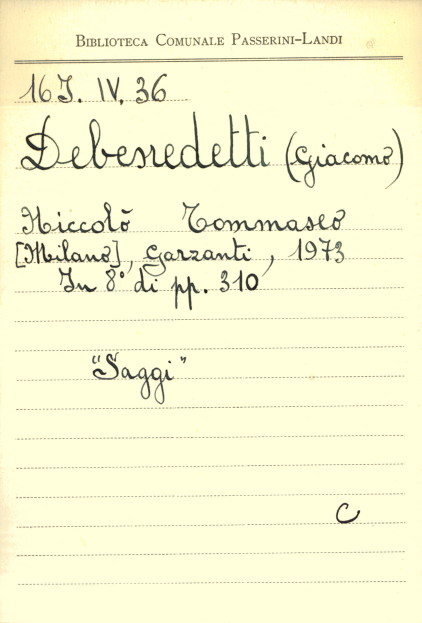 Biblioteca Comunale Passerini-Landi
16 J. IV. 36
Debenedetti (Giacomo)
Niccolò Tommaseo
[Milano], Garzanti, 1973
In 8° di pp. 310
"Saggi"
C